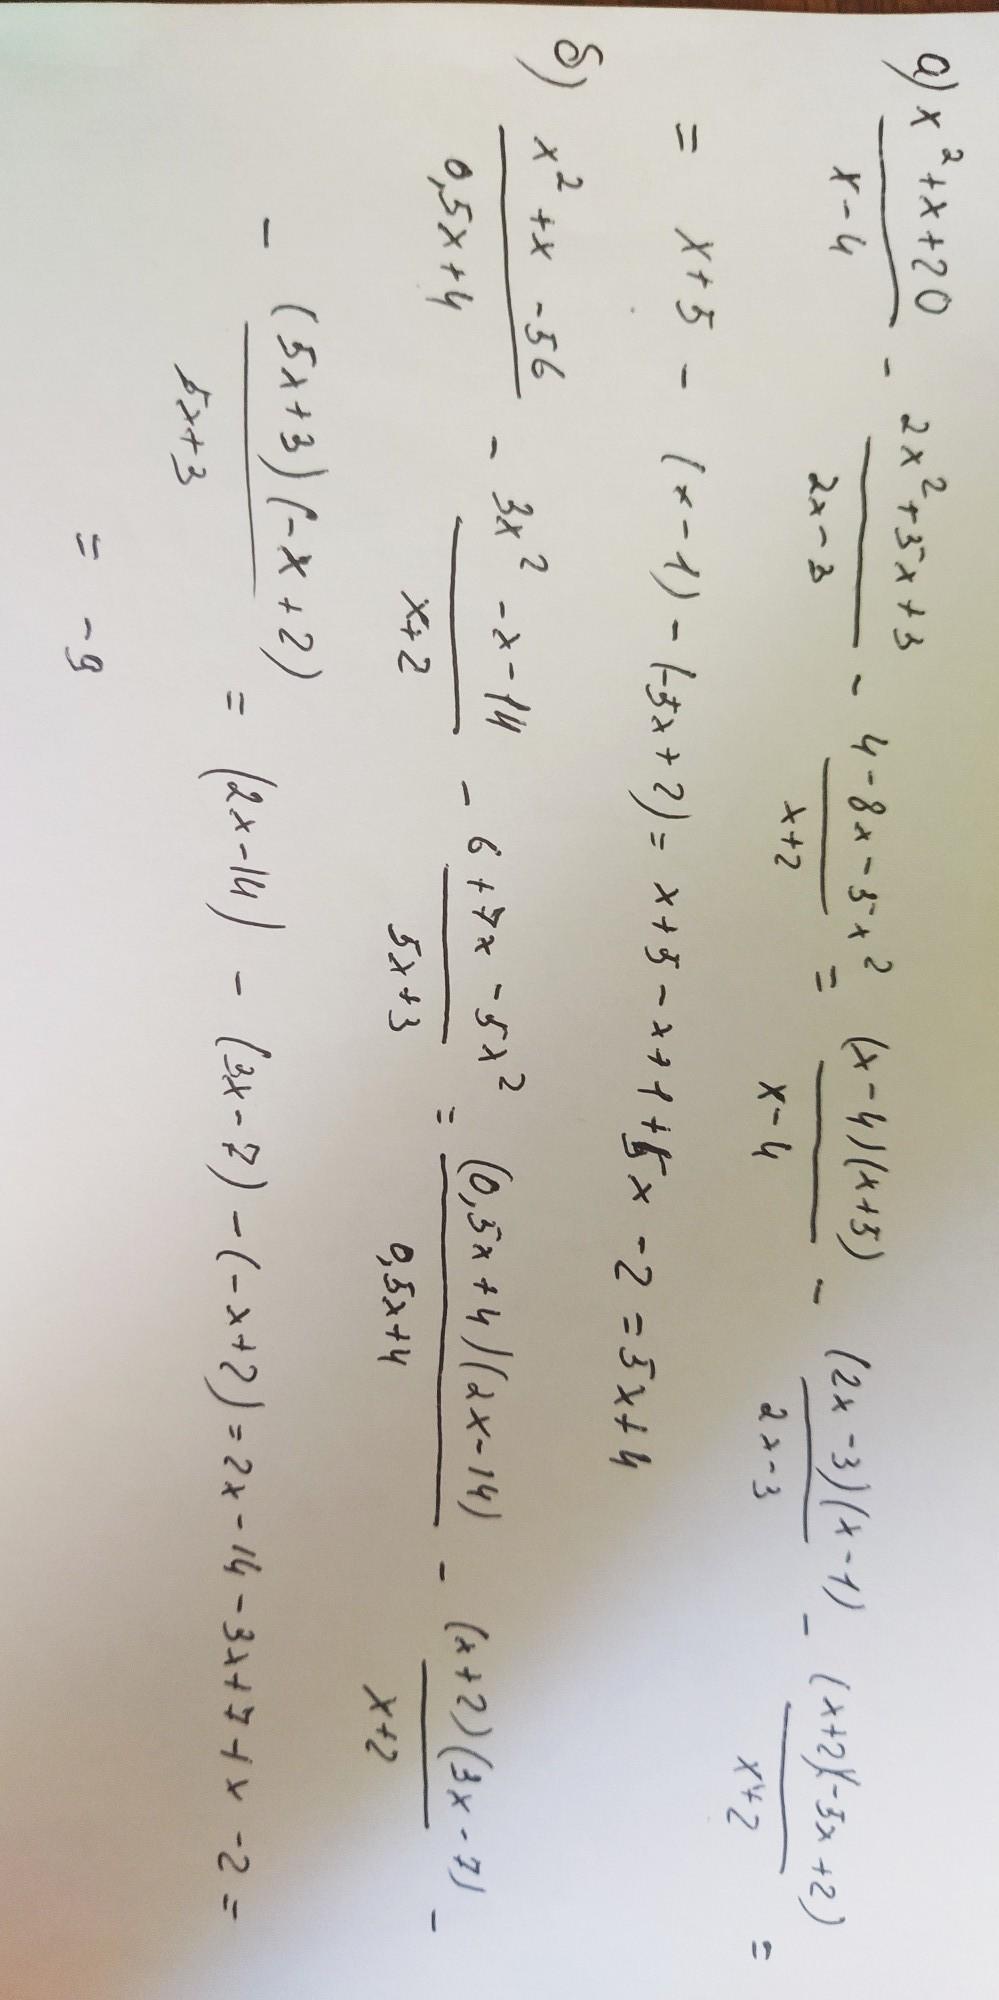 а) (x²+x+20)/(x-4) - (2x²+5x+3)/(2x-3) - (4-8x-5x²)/(x+2) = ((x-4)(x+5))/(x-4) - ((2x-3)(x-1))/(2x-3) - ((x+2)(-5x+2))/(x+2) =
= x+5 - (x-1) - (-5x+2) = x+5-x+1+5x-2 = 5x+4
б) (x²+x-56)/(0,5x+4) - (3x²-x-14)/(x+2) - (6+7x-5x²)/(5x+3) = ((0,5x+4)(2x-14))/(0,5x+4) - ((x+2)(3x-7))/(x+2) -
- ((5x+3)(-x+2))/(5x+3) = (2x-14) - (3x-7) - (-x+2) = 2x-14-3x+7+x-2 =
= -9